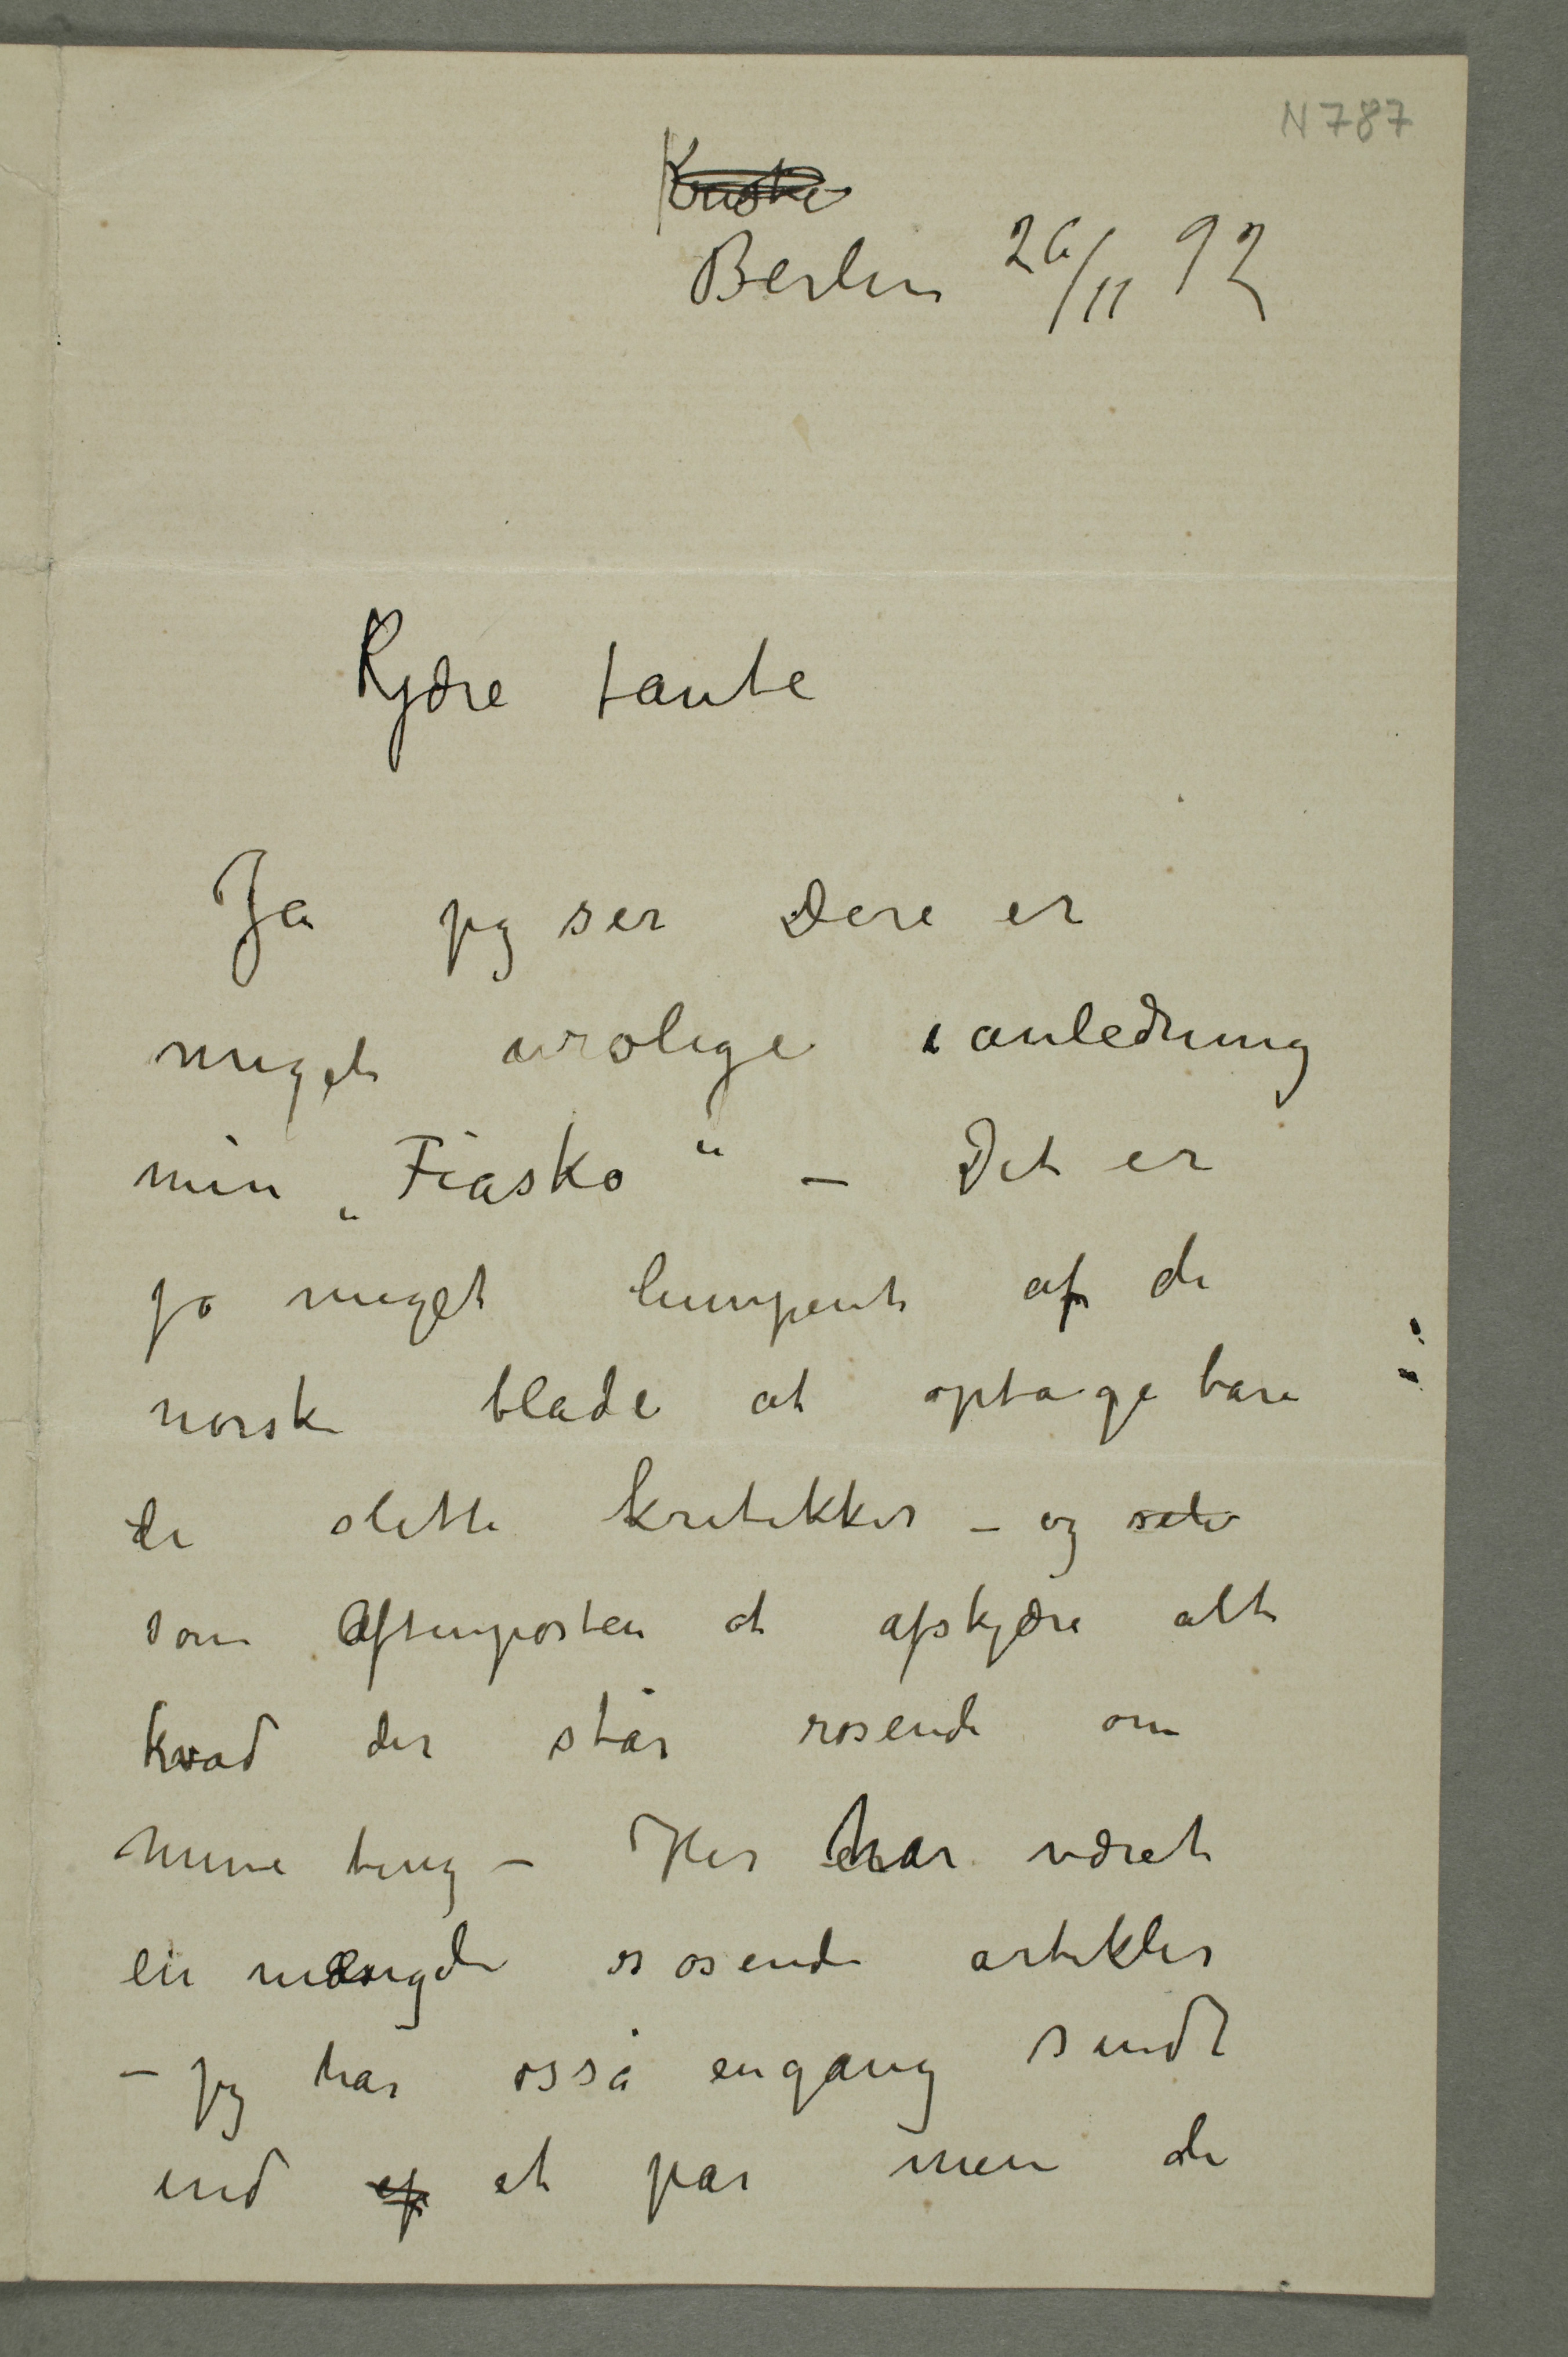 N 787
Kristi
Berlin 26/11 92
Kjære tante
Ja jeg ser Dere er
meget urolige i anledning
min „Fiasko“ – Det er
jo meget lumpent af de
norske blade at optage bare
de slette kritikker – og selv
som Aftenposten at afskjære alt
hvad der står rosende om
mine ting – Her har været
en mængde rosende artikler
– jeg har osså engang sendt
ind af et par men de